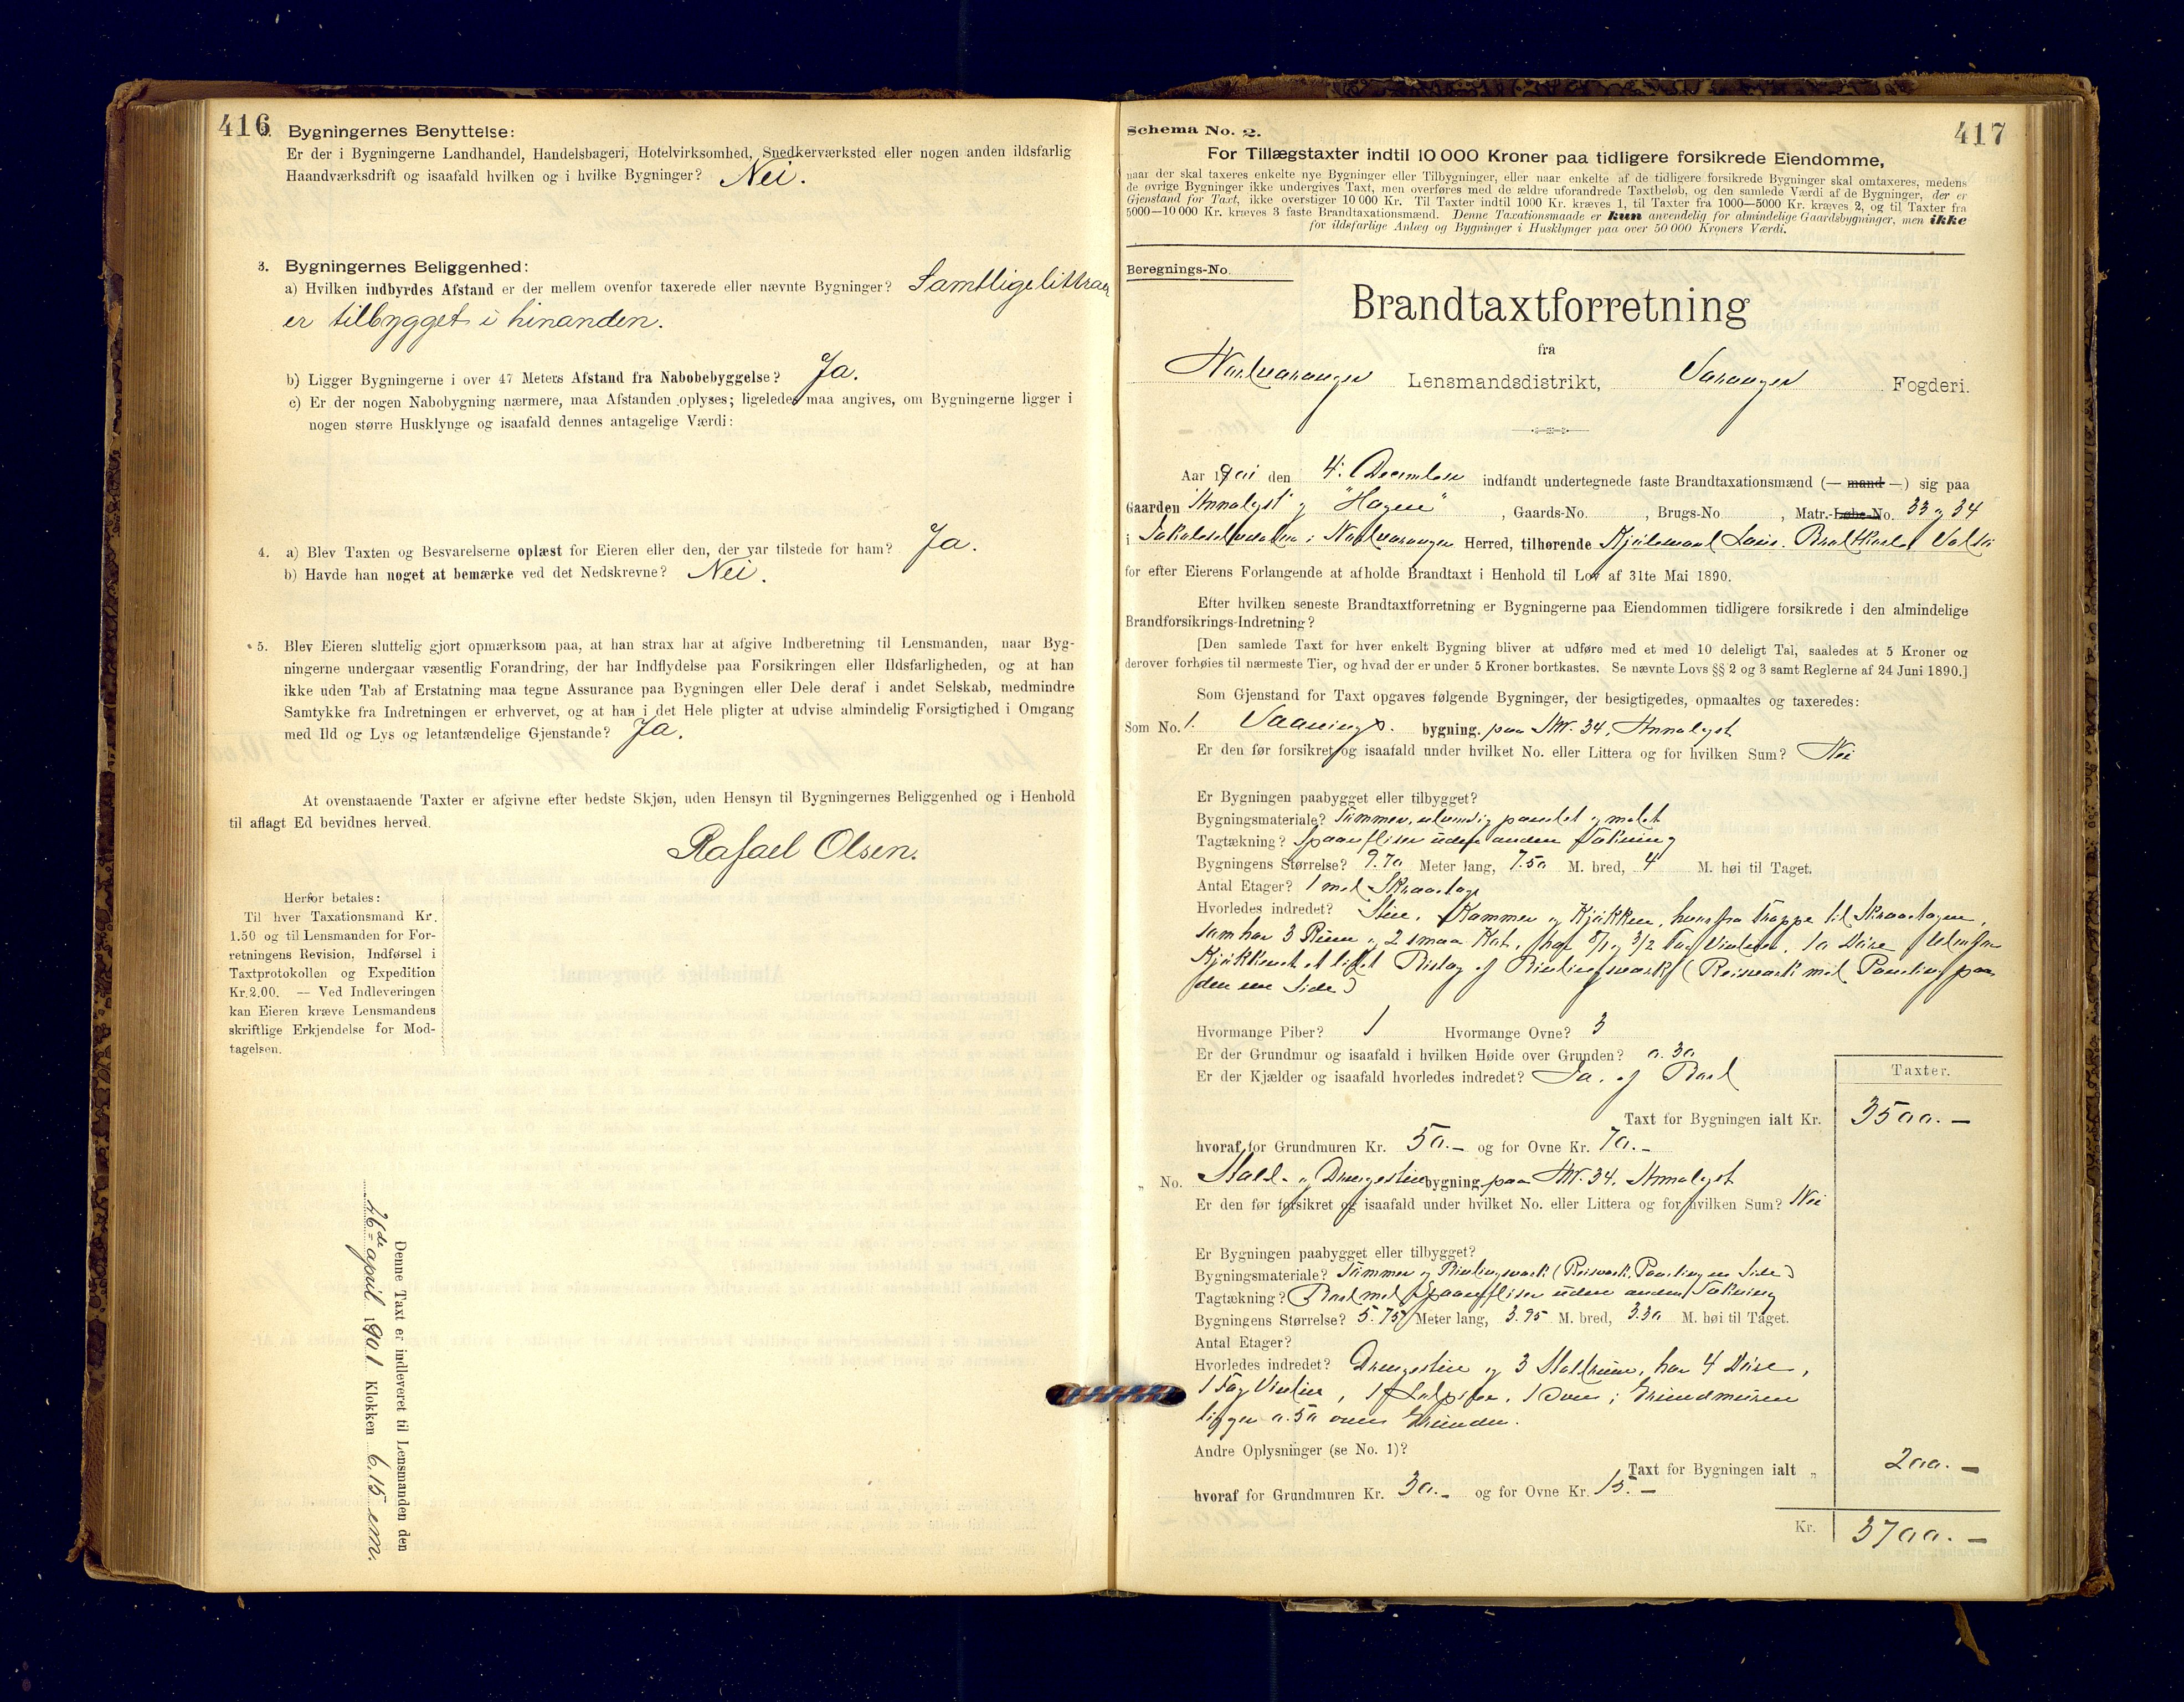 416
2. Bygningernes Benyttelse:
Er der i Bygningerne Landhandel, Handelsbageri, Hotelvirksomhed, Snedkerværksted eller nogen anden ildsfarlig
Haandværksdrift og isaafald hvilken og i hvilke Bygninger? Nei.
3. Bygningernes Beliggenhed:
a) Hvilken indbyrdes Afstand er der mellem ovenfor taxerede eller nævnte Bygninger? Samtlige littraer
er tilbygget i hinanden.
b) Ligger Bygningerne i over 47 Meters Afstand fra Nabobebyggelse? Ja.
c) Er der nogen Nabobygning nærmere, maa Afstanden oplyses; ligeledes maa angives, om Bygningerne ligger i
nogen større Husklynge og isaafald dennes antagelige Værdi:
4. a) Blev Taxten og Besvarelserne oplæst for Eieren eller den, der var tilstede for ham? Ja.
b) Havde han noget at bemærke ved det Nedskrevne? Nei.
5. Blev Eieren sluttelig gjort opmærksom paa, at han strax har at afgive Indberetning til Lensmanden, naar Byg-
ningerne undergaar væsentlig Forandring, der har Indflydelse paa Forsikringen eller Ildsfarligheden, og at han
ikke uden Tab af Erstatning maa tegne Assurance paa Bygningen eller Dele deraf i andet Selskab, medmindre
Samtykke fra Indretningen er erhvervet, og at han i det Hele pligter at udvise almindelig Forsigtighed i Omgang
med Ild og Lys og letantændelige Gjenstande? Ja.
At ovenstaaende Taxter er afgivne efter bedste Skjøn, uden Hensyn til Bygningernes Beliggenhed og i Henhold
til aflagt Ed bevidnes herved.
Rafael Olsen.
Herfor betales:
Til hver Taxationsmand Kr.
1.50 og til Lensmanden for For-
retningens Revision, Indførsel i
Taxtprotokollen og Expedition
Kr. 2.00. — Ved Indleveringen
kan Eieren kræve Lensmandens
skriftlige Erkjendelse for Mod-
tagelsen.
Denne Taxt er indleveret til Lensmanden den
26de april 1901 Klokken 6,15 em.
417
Schema No. 2.
For Tillægstaxter indtil 10 000 Kroner paa tidligere forsikrede Eiendomme,
naar der skal taxeres enkelte nye Bygninger eller Tilbygninger, eller naar enkelte af de tidligere forsikrede Bygninger skal omtaxeres, medens
de øvrige Bygninger ikke undergives Taxt, men overføres med de ældre uforandrede Taxtbeløb, og den samlede Værdi af de Bygninger, der er
Gjenstand for Taxt, ikke overstiger 10 000 Kr. Til Taxter indtil 1000 Kr. kræves 1, til Taxter fra 1000—5000 Kr. kræves 2, og til Taxter fra
5000—10 000 Kr. kræves 3 faste Brandtaxationsmænd. Denne Taxationsmaade er kun anvendelig for almindelige Gaardsbygninger, men ikke
for ildsfarlige Anlæg og Bygninger i Husklynger paa over 50 000 Kroners Værdi.
Beregnings-No.
Brandtaxtforretning
fra
Nordvaranger Lensmandsdistrikt, Varanger Fogderi.
Aar 1901 den 4. December indfandt undertegnede faste Brandtaxationsmænd (— mand —) sig paa
Gaarden "Annalyst" og "Hagen", Gaards-No. , Brugs-No. , Matr.-Løbe-No. 33 og 34
i Nordvaranger Herred, tilhørende
for efter Eierens Forlangende at afholde Brandtaxt i Henhold til Lov af 31te Mai 1890.
Efter hvilken seneste Brandtaxtforretning er Bygningerne paa Eiendommen tidligere forsikrede i den almindelige
Brandforsikrings-Indretning?
[Den samlede Taxt for hver enkelt Bygning bliver at udføre med et med 10 deleligt Tal, saaledes at 5 Kroner og
derover forhøies til nærmeste Tier, og hvad der er under 5 Kroner bortkastes. Se nævnte Lovs §§ 2 og 3 samt Reglerne af 24 Juni 1890.]
Som Gjenstand for Taxt opgaves følgende Bygninger, der besigtigedes, opmaaltes og taxeredes:
Som No. 1. Vaanings bygning. paa 34, Annalyst
Er den før forsikret og isaafald under hvilket No. eller Littera og for hvilken Sum? Nei
Er Bygningen paabygget eller tilbygget?
Bygningsmateriale? Tømmer, udvendig panelet og malet
Tagtækning? Spaanfliser uden anden Tækning
Bygningens Størrelse? 9.70 Meter lang, 7.50 M. bred, 4 M. høi til Taget.
Antal Etager? 1 med Skraatage
Hvorledes indredet? Stue, Kammer og Kjøkken, hvorfra Trappe til Skraatagen,
som har 3 Rum og 2 smaa Kot, 10 Døre
Kjøkkenet et lidet Bislag af Bindingsværk (Reisværk med Paneling paa
den ene Side)
Hvormange Piber? 1 Hvormange Ovne? 3
Er der Grundmur og isaafald i hvilken Høide over Grunden? 0.30
Er der Kjælder og isaafald hvorledes indredet? Ja. af
Taxter.
Taxt for Bygningen ialt Kr. 3500.—
hvoraf for Grundmuren Kr. 50.— og for Ovne Kr. 70.—
„ No. Stald- og Drengestue bygning. paa 34, Annalyst
Er den før forsikret og isaafald under hvilket No. eller Littera og for hvilken Sum? Nei
Er Bygningen paabygget eller tilbygget?
Bygningsmateriale? Tømmer og Bindingsværk (Reisværk, Paneling en Side)
Tagtækning? Bord med Spaanfliser uden anden Tækning
Bygningens Størrelse? 5.75 Meter lang, 3.95 M. bred, 3.30 M. høi til Taget.
Antal Etager?
Hvorledes indredet? Drengestue og 3 Staldrum, har 4 Døre,
1 Fag Vindue, 1 , 1 Ovn; Grundmuren
ligger 0.50 over Grunden.
Andre Oplysninger (se No. 1)?
Taxt for Bygningen ialt „ 200.—
hvoraf for Grundmuren Kr. 30.— og for Ovne Kr. 15.—
Kr. 3700.—